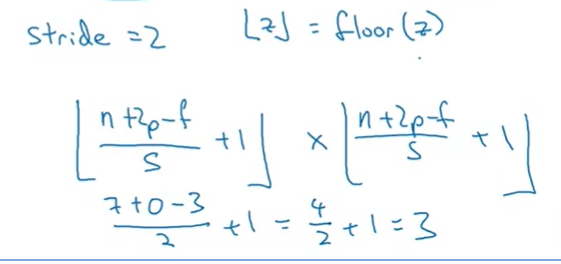 stride = 2    ⌊z⌋ = floor(z)
⌊(n+2p-f)/s + 1⌋ × ⌊(n+2p-f)/s + 1⌋
(7+0-3)/2 + 1 = 4/2 + 1 = 3